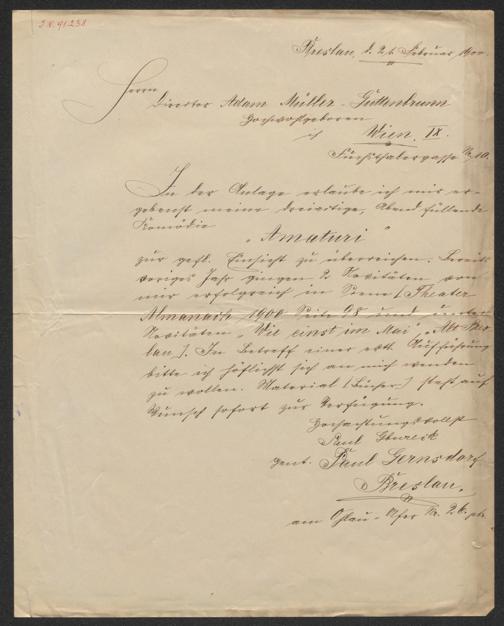 I.N. 91.238
Breslau, d. 21. Februar 1900.
Herrn
Director Adam Müller-Guttenbrunn
Hochwohlgeboren
in Wien, IX.
Fuchsthalergasse No 10.
In der Anlage erlaube ich mir er-
gebenst meine dreiaktige, Abend füllende
Komödie
„Amaturi"
zur gefl. Einsicht zu überreichen. Bereits
voriges Jahr gingen 2 Novitäten von
mir erfolgreich in Scene [Theater
Almanach 1900 Seite 98 und unter
Novitäten „Wie einst im Mai"
lau]. In Betreff einer evtl. Aufführung
bitte ich höflichst sich an mich wenden
zu wollen. Material [Bücher] steht auf
Wunsch sofort zur Verfügung.
Hochachtungsvollst
Paul
gent. Paul Gernsdorf
Breslau.
am Ohlau-Ufer Nr. 26.